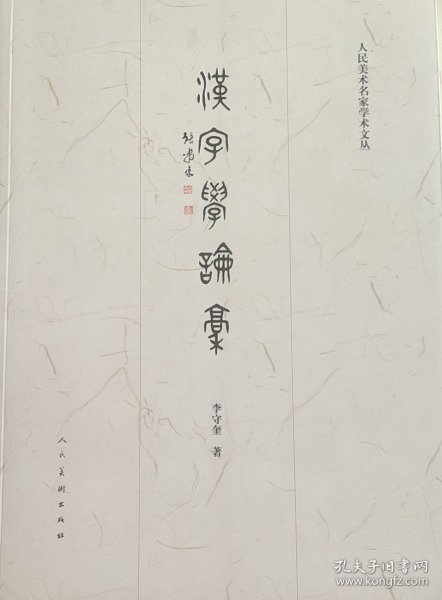 人民美术名家学术文丛
漢字學論稾
李守奎 著
人民美術出版社
孔夫子旧书网
www.kongfz.com